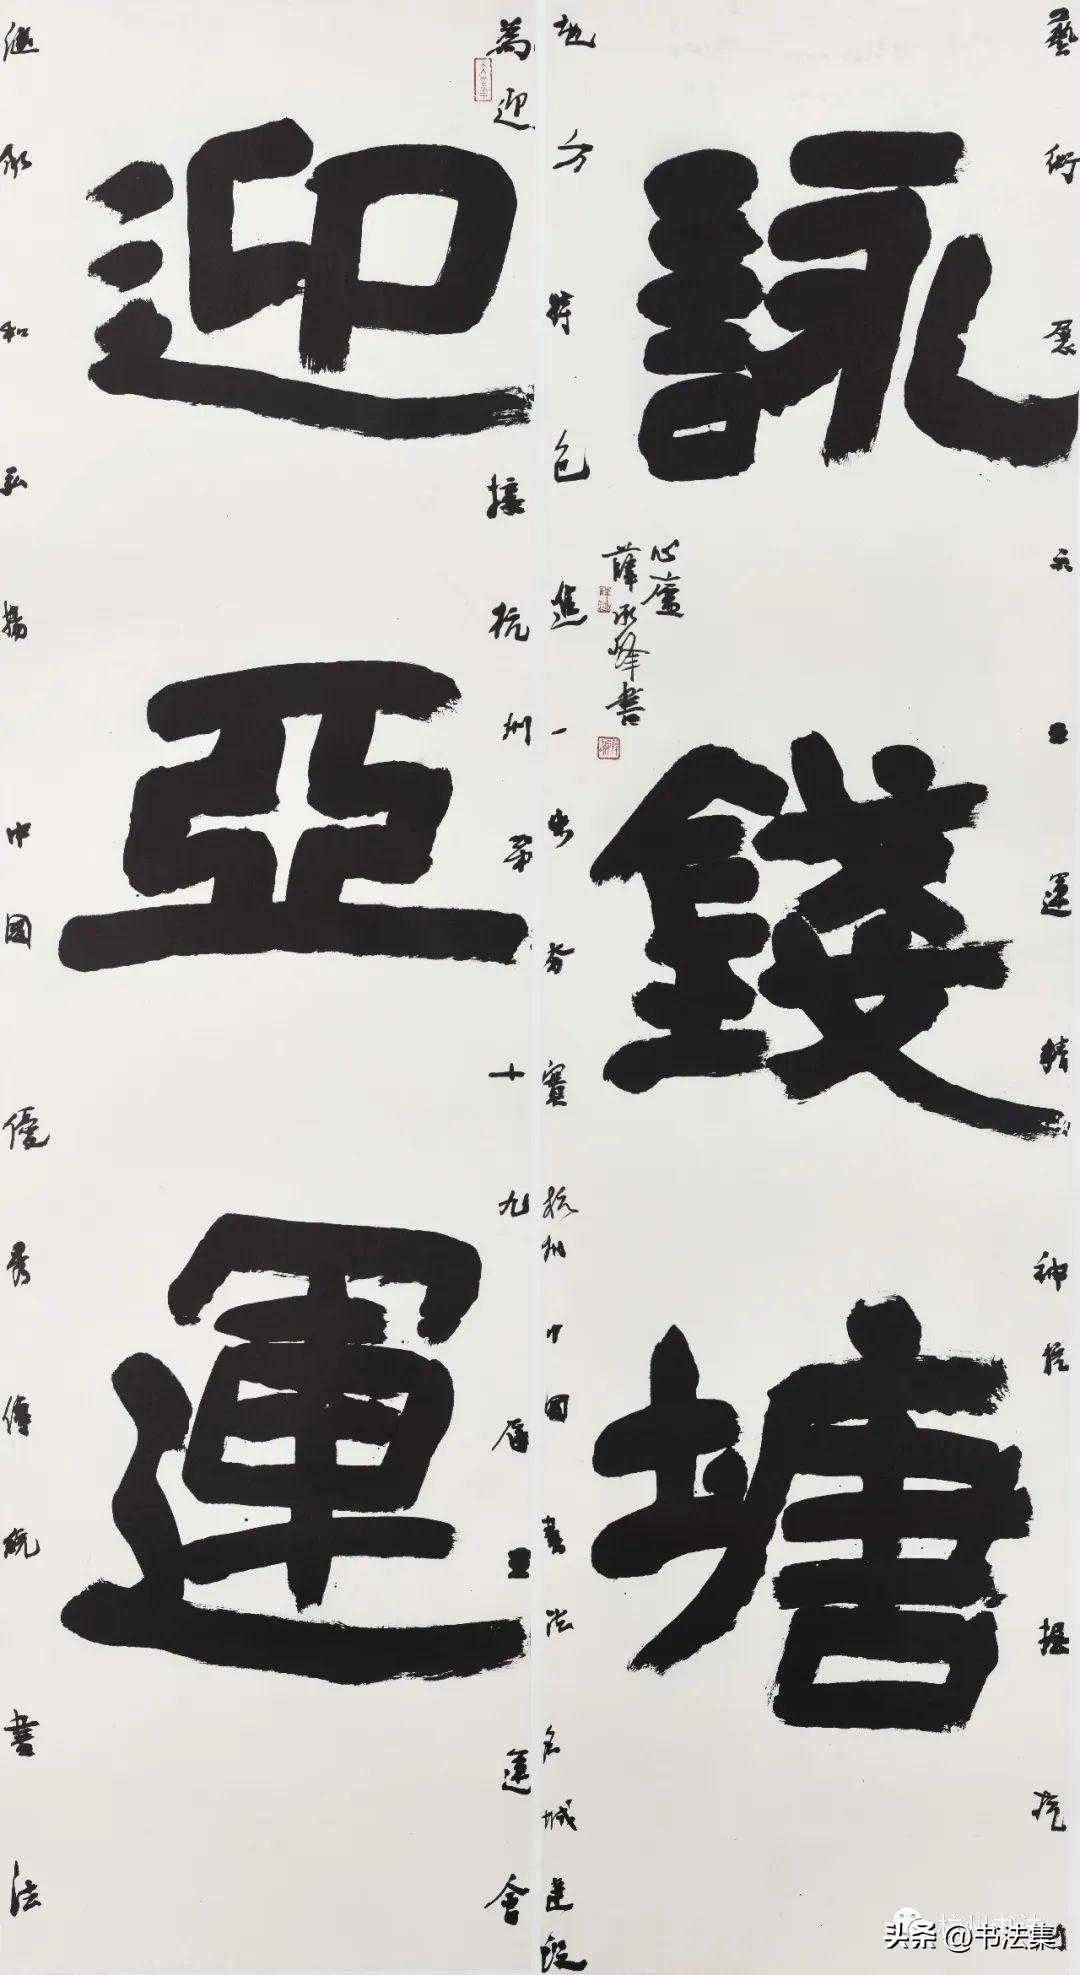 詠錢塘
迎亞運
為迎接杭州第十九屆亞運會
繼承和弘揚中國優秀傳統書法
藝術展示亞運精神挖掘
地方特色進一步夯實杭州中國書法名城建設
心廬
薛峰書
头条 @书法集